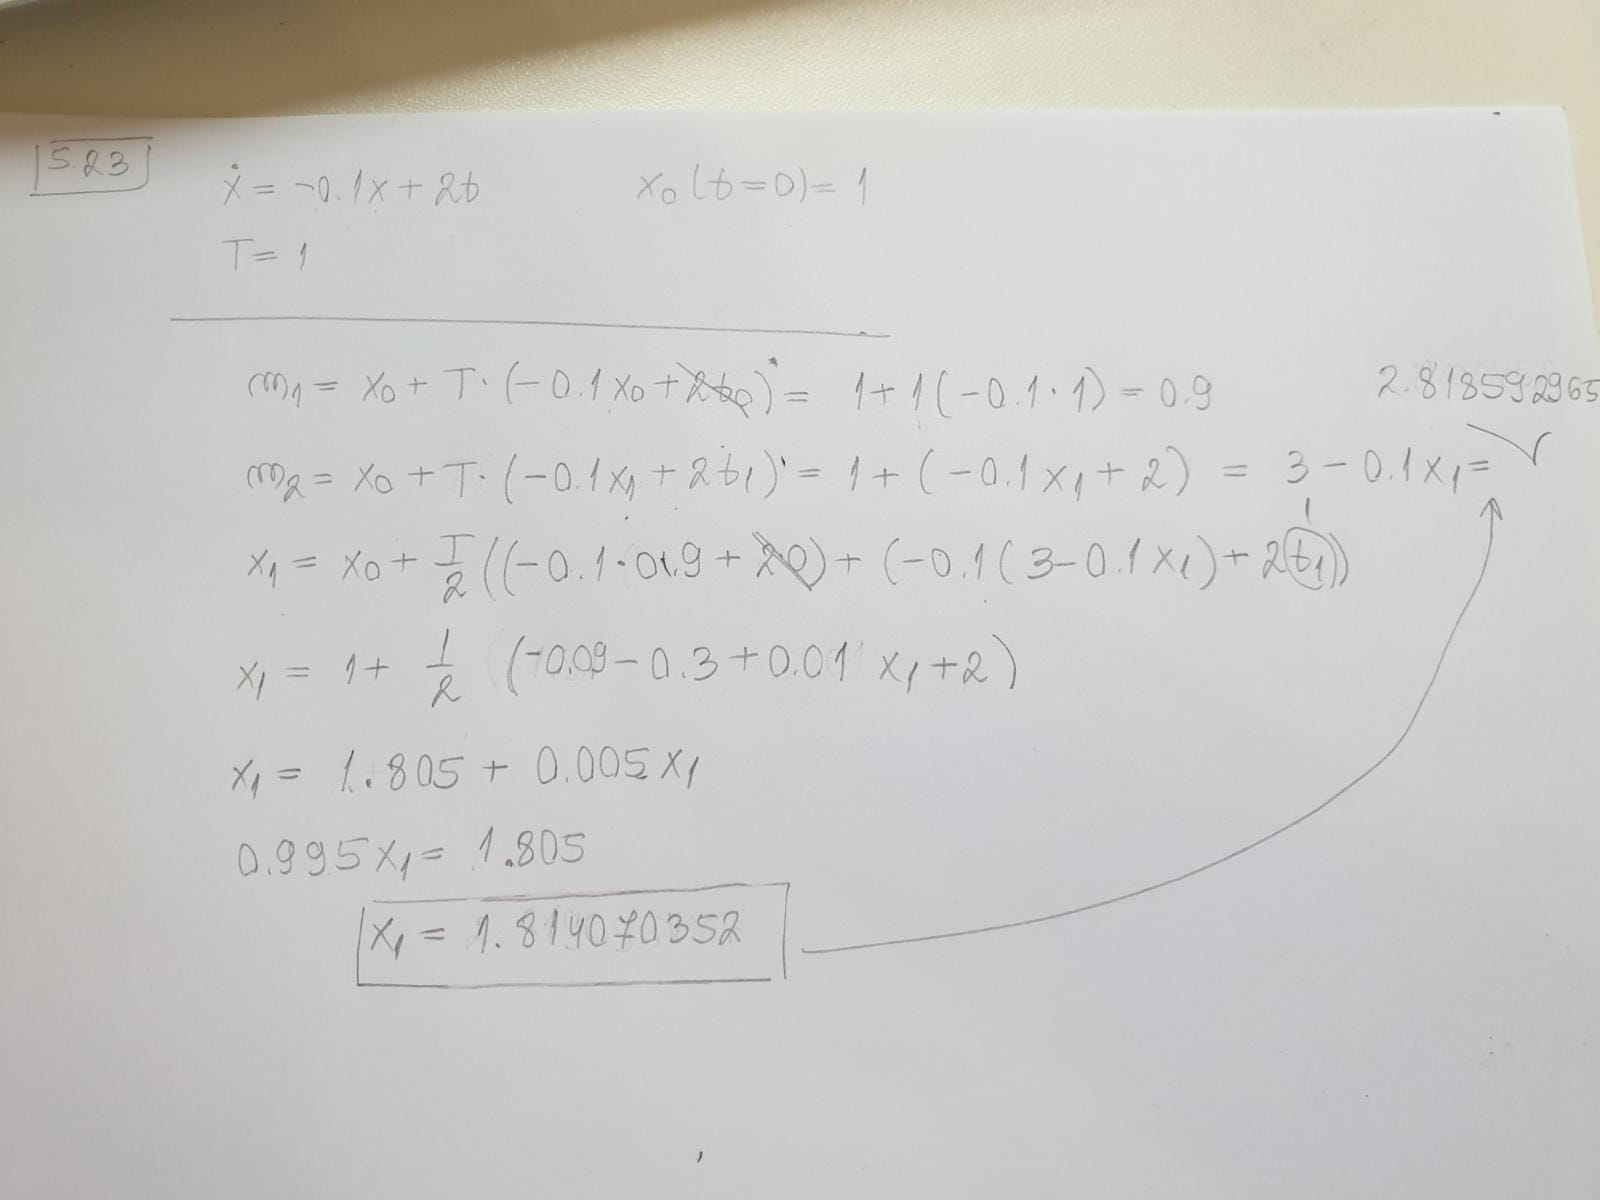 5.23
ẋ = -0.1x + 2t    x₀(t=0) = 1
T = 1
m₁ = x₀ + T·(-0.1x₀ + 2t₀) = 1 + 1(-0.1·1) = 0.9
2.818592965
m₂ = x₀ + T·(-0.1x₁ + 2t₁) = 1 + (-0.1x₁ + 2) = 3 - 0.1x₁ =
1
x₁ = x₀ + T/2((-0.1·0.9 + 20) + (-0.1(3 - 0.1x₁) + 2t₁))
x₁ = 1 + 1/2 (-0.09 - 0.3 + 0.01 x₁ + 2)
x₁ = 1.805 + 0.005x₁
0.995x₁ = 1.805
x₁ = 1.814070352